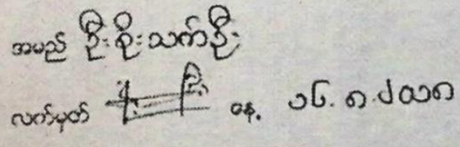 အမည် ဦးစိုးသက်ဦး
လက်မှတ် နေ့ ၁၆.၈.၂၀၁၈